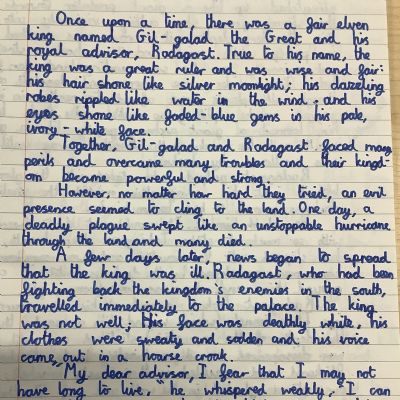 Once upon a time, there was a fair elven
king named Gil-galad the Great and his
royal advisor, Radagast. True to his name, the
king was a great ruler and was wise and fair:
his hair shone like silver moonlight; his dazzling
robes rippled like water in the wind and his
eyes shone like faded-blue gems in his pale,
ivory-white face.
Together, Gil-galad and Radagast faced many
perils and overcame many troubles and their kingd-
om became powerful and strong.
However, no matter how hard they tried, an evil
presence seemed to cling to the land. One day, a
deadly plague swept like an unstoppable hurricane
through the land and many died.
A few days later, news began to spread
that the king was ill. Radagast, who had been
fighting back the kingdom's enemies in the south,
travelled immediately to the palace. The king
was not well; His face was deathly white, his
clothes were sweaty and sodden and his voice
came out in a hoarse croak.
"My dear advisor, I fear that I may not
have long to live," he whispered weakly, "I can